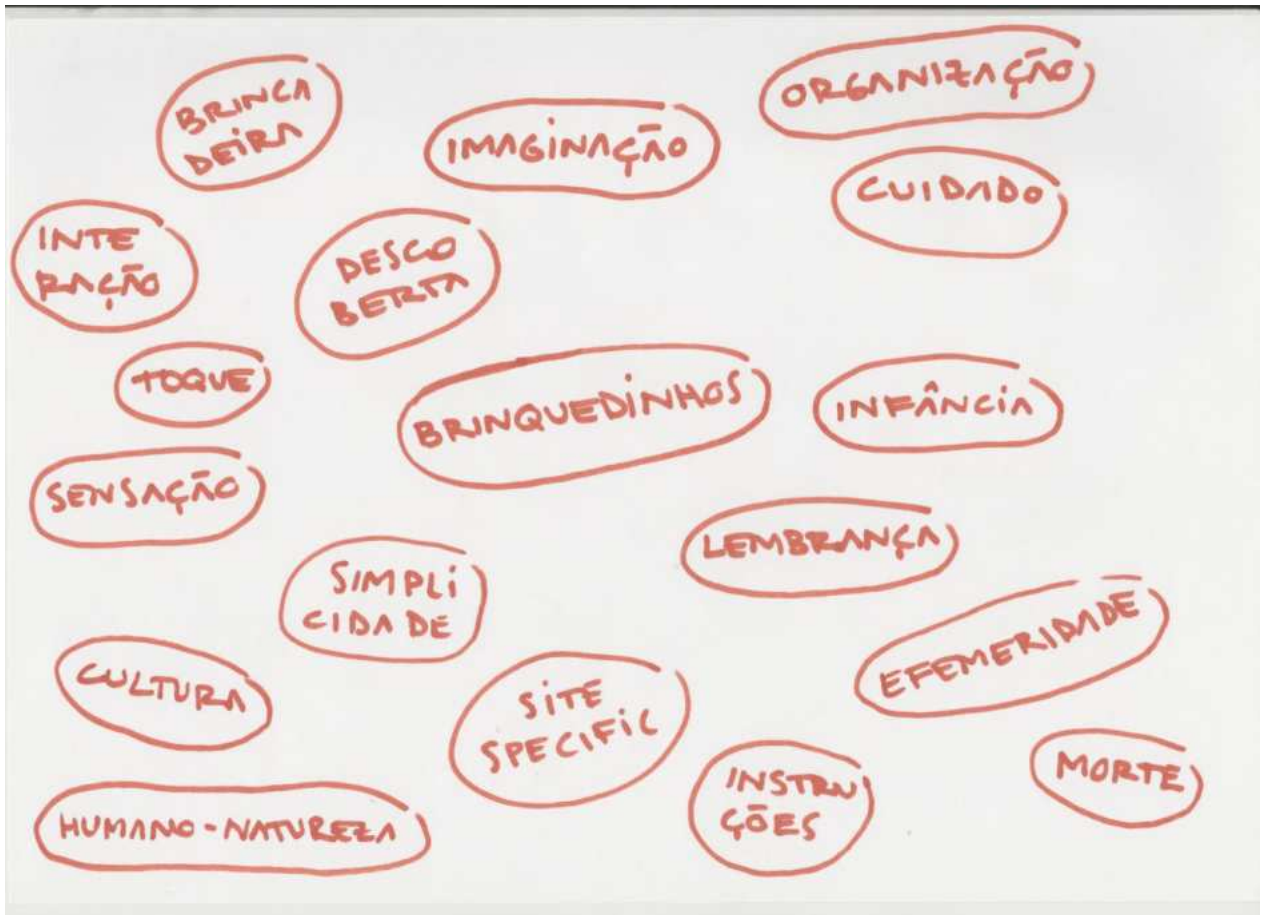 BRINCA
DEIRA
IMAGINAÇÃO
ORGANIZAÇÃO
CUIDADO
INTE
RAÇÃO
DESCO
BERTA
TOQUE
BRINQUEDINHOS
INFÂNCIA
SENSAÇÃO
LEMBRANÇA
SIMPLI
CIDADE
EFEMERIDADE
CULTURA
SITE
SPECIFIC
INSTRU
ÇÕES
MORTE
HUMANO-NATUREZA